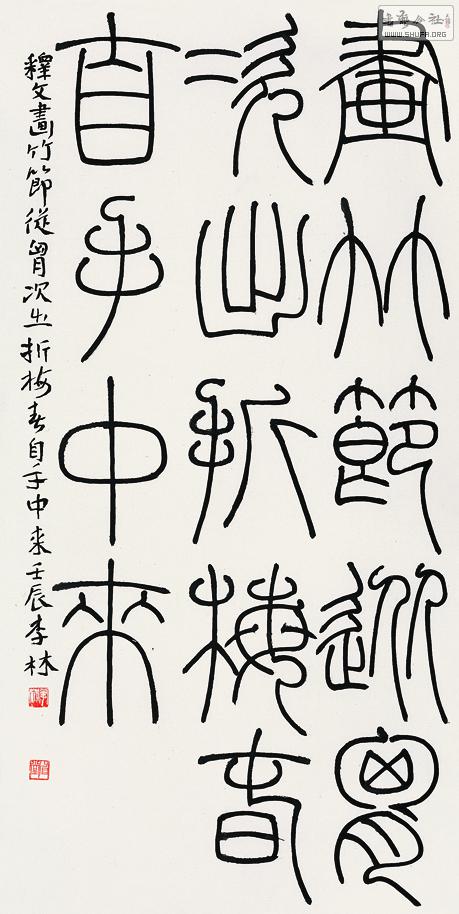 畫竹節從胷
次出折梅春
自手中來
釋文畫竹節從胷次出折梅春自手中来壬辰李林
WWW.SHUFA.ORG